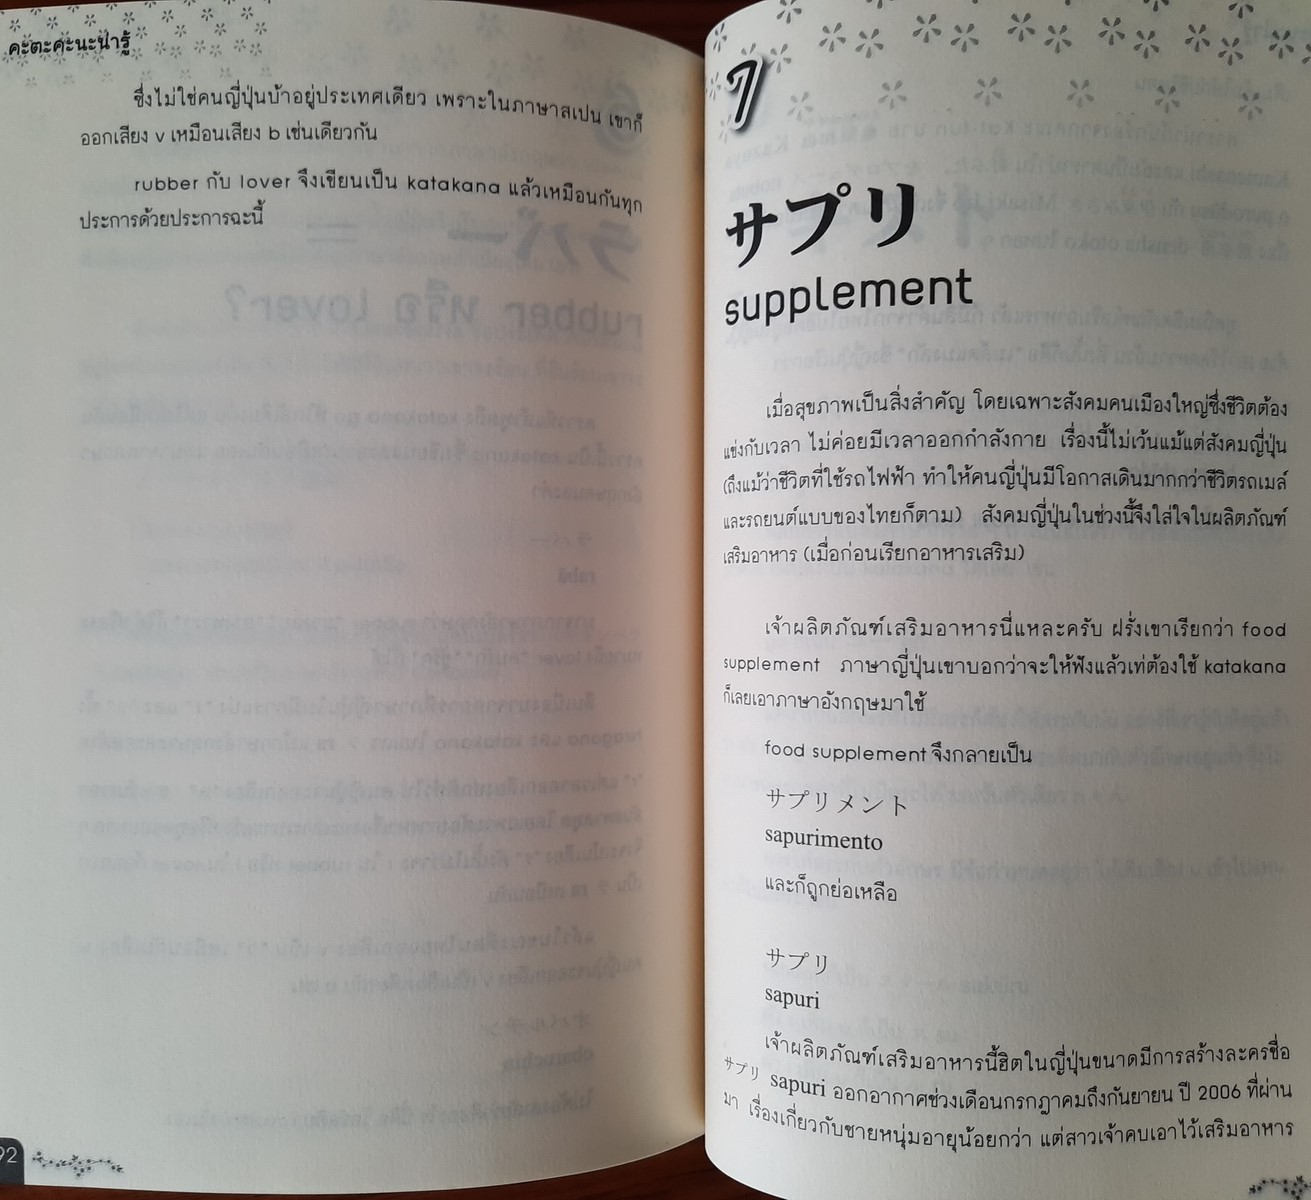 คะตะคะนะน่ารู้
ซึ่งไม่ใช่คนญี่ปุ่นบ้าอยู่ประเทศเดียว เพราะในภาษาสเปน เขาก็
ออกเสียง v เหมือนเสียง b เช่นเดียวกัน
rubber กับ lover จึงเขียนเป็น katakana แล้วเหมือนกันทุก
ประการด้วยประการฉะนี้
92
7
サプリ
supplement
เมื่อสุขภาพเป็นสิ่งสำคัญ โดยเฉพาะสังคมคนเมืองใหญ่ซึ่งชีวิตต้อง
แข่งกับเวลา ไม่ค่อยมีเวลาออกกำลังกาย เรื่องนี้ไม่เว้นแม้แต่สังคมญี่ปุ่น
(ถึงแม้ว่าชีวิตที่ใช้รถไฟฟ้า ทำให้คนญี่ปุ่นมีโอกาสเดินมากกว่าชีวิตรถเมล์
และรถยนต์แบบของไทยก็ตาม) สังคมญี่ปุ่นในช่วงนี้จึงใส่ใจในผลิตภัณฑ์
เสริมอาหาร (เมื่อก่อนเรียกอาหารเสริม)
เจ้าผลิตภัณฑ์เสริมอาหารนี่แหละครับ ฝรั่งเขาเรียกว่า food
supplement ภาษาญี่ปุ่นเขาบอกว่าจะให้ฟังแล้วเท่ต้องใช้ katakana
ก็เลยเอาภาษาอังกฤษมาใช้
food supplement จึงกลายเป็น
サプリメント
sapurimento
และก็ถูกย่อเหลือ
サプリ
sapuri
เจ้าผลิตภัณฑ์เสริมอาหารนี้ฮิตในญี่ปุ่นขนาดมีการสร้างละครชื่อ
サプリ sapuri ออกอากาศช่วงเดือนกรกฎาคมถึงกันยายน ปี 2006 ที่ผ่าน
มา เรื่องเกี่ยวกับชายหนุ่มอายุน้อยกว่า แต่สาวเจ้าคบเอาไว้เสริมอาหาร